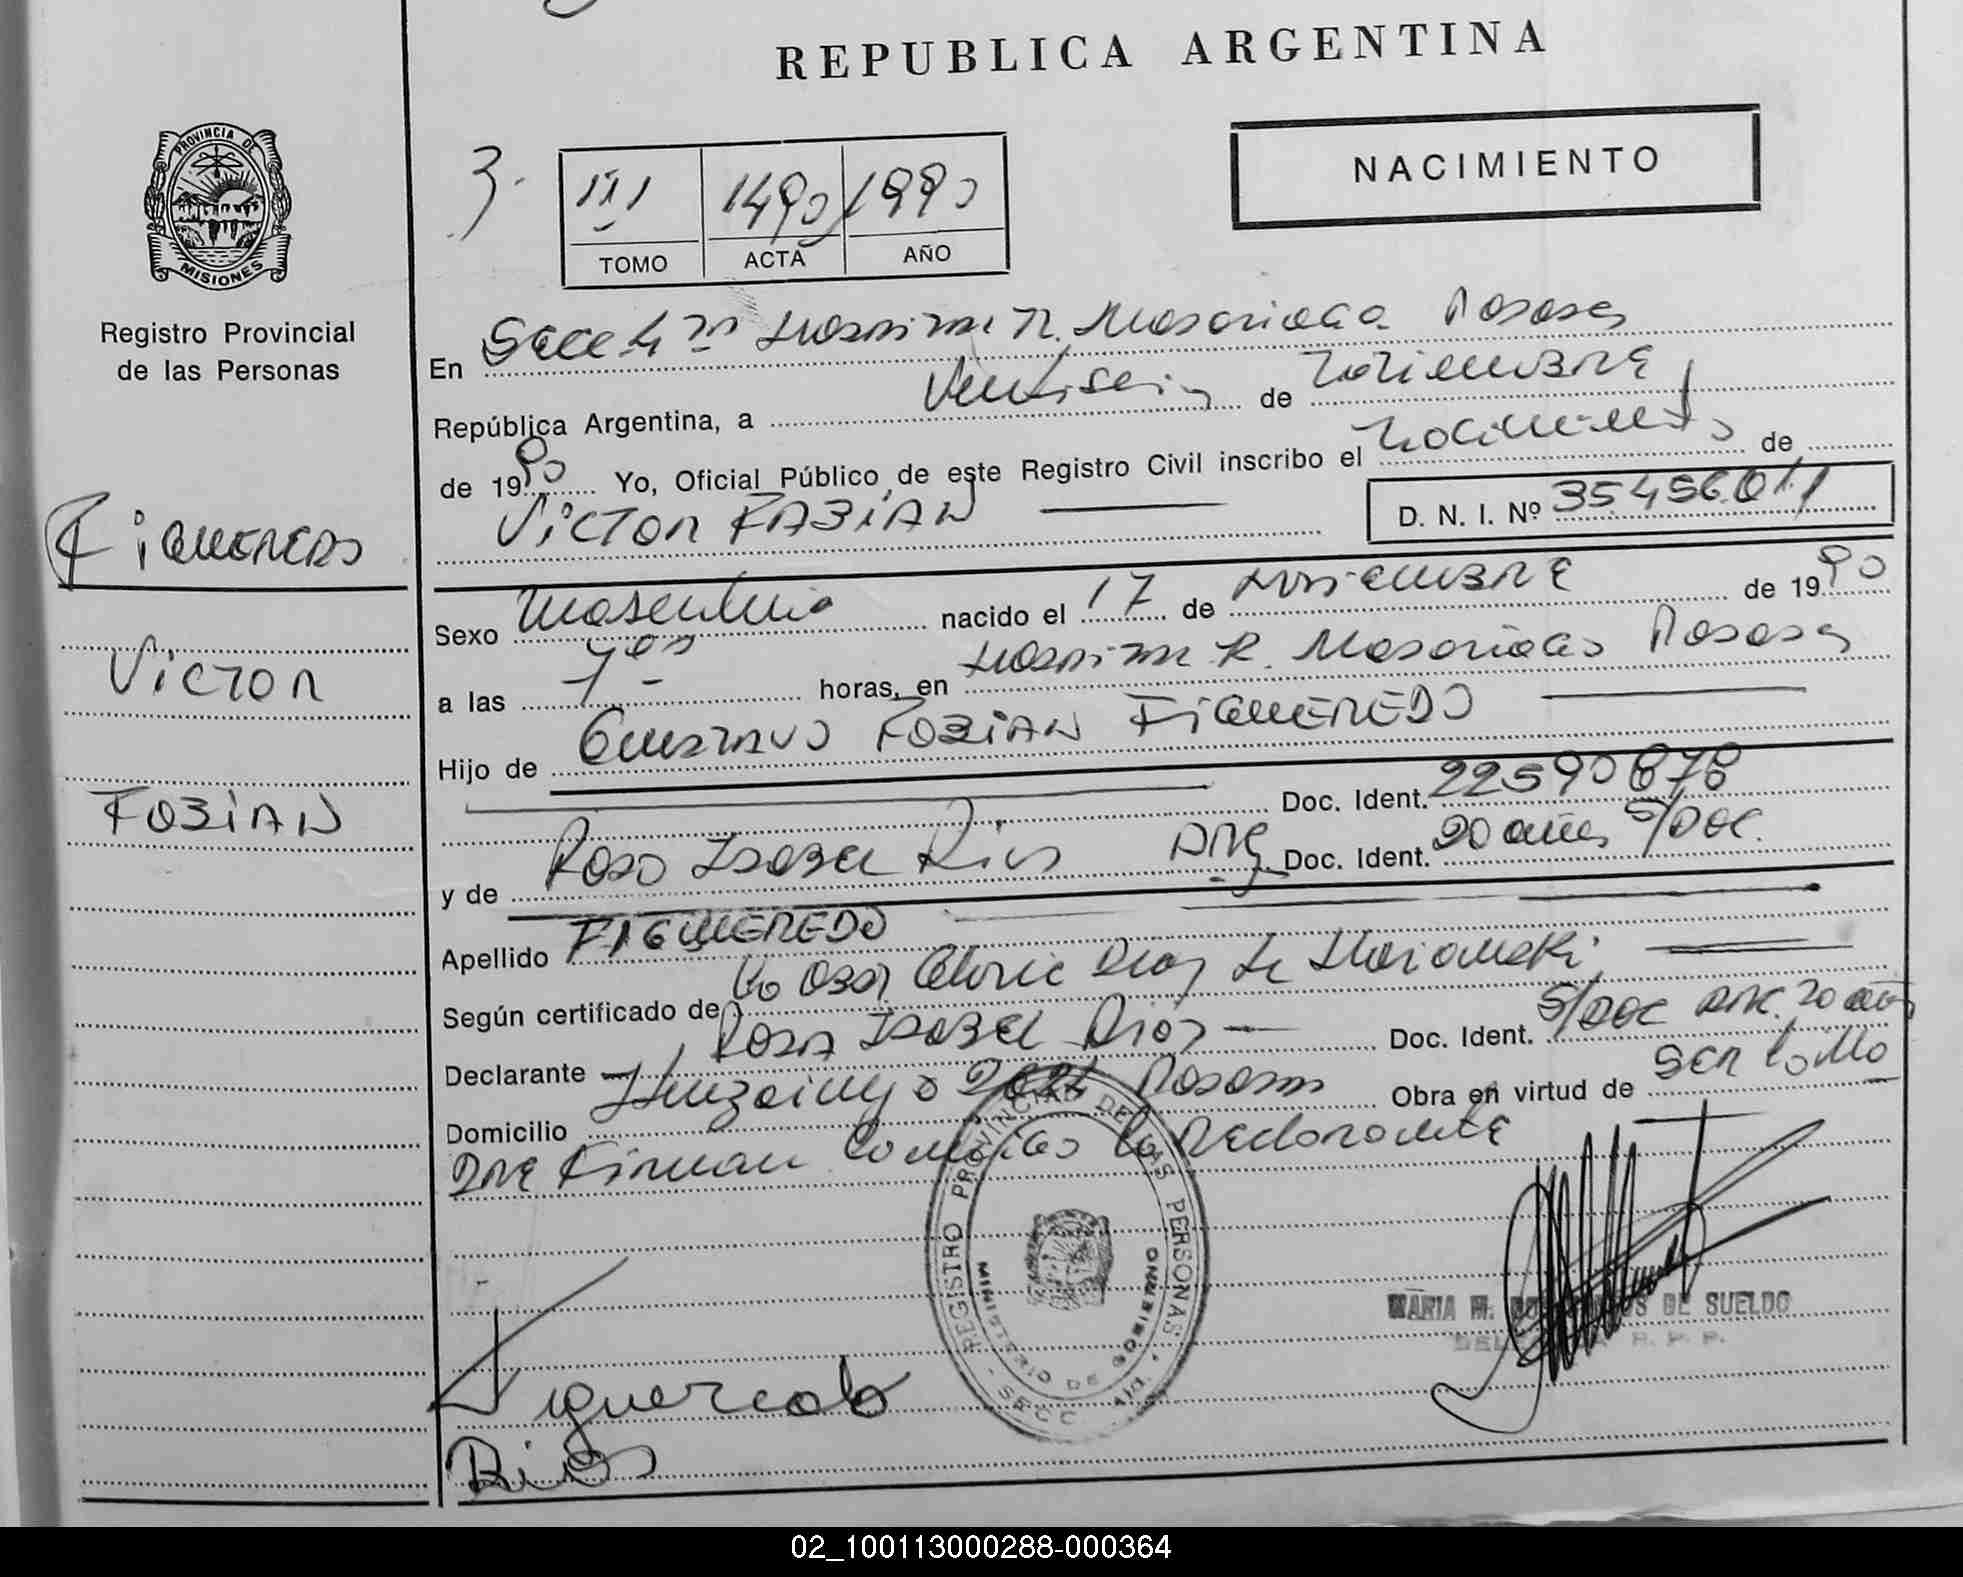 REPUBLICA ARGENTINA
PROVINCIA DE
MISIONES
Registro Provincial
de las Personas
NACIMIENTO
3.
III 1490 1990
TOMO ACTA AÑO
En Secc 4ta Hospital R. Madariaga Posadas
República Argentina, a Veintiseis de Noviembre
de 1990 Yo, Oficial Público de este Registro Civil inscribo el Nacimiento de
VICTOR FABIAN D. N. I. Nº 35.456.011
FIGUEREDO
VICTOR
FABIAN
Sexo Masculino nacido el 17 de Noviembre de 1990
a las horas, en Hospital R. Madariaga Posadas
Hijo de GUSTAVO FABIAN FIGUEREDO
Doc. Ident. 22590878
y de Rosa Isabel Rios ARG Doc. Ident. 20 años S/DOC.
Apellido FIGUEREDO
Según certificado de la Obst Gloria Diaz de
Declarante Rosa Isabel Rios Doc. Ident. S/DOC ARG. 20 años
Domicilio Posadas Obra en virtud de ser la Mad
DRE Firman la Declarante
REGISTRO PROVINCIAL DE LAS PERSONAS
MINISTERIO DE GOBIERNO
SECC
MARIA M. DE SUELDO
R. P. P.
Figueredo
Rios
02_100113000288-000364